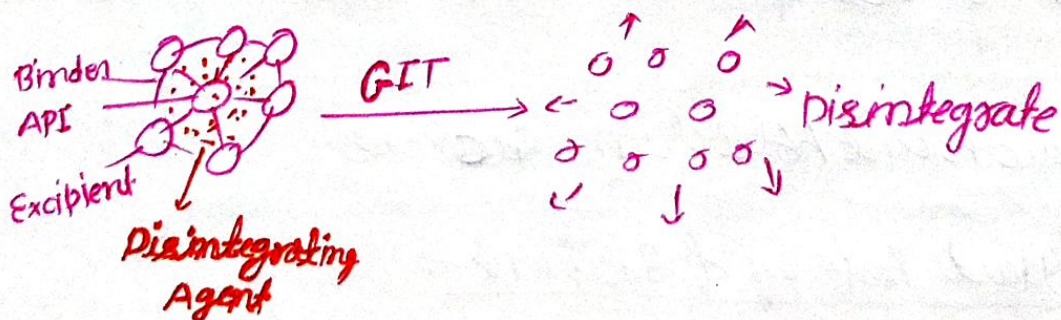 Binder
API
Excipient
Disintegrating
Agent
GIT
Disintegrate